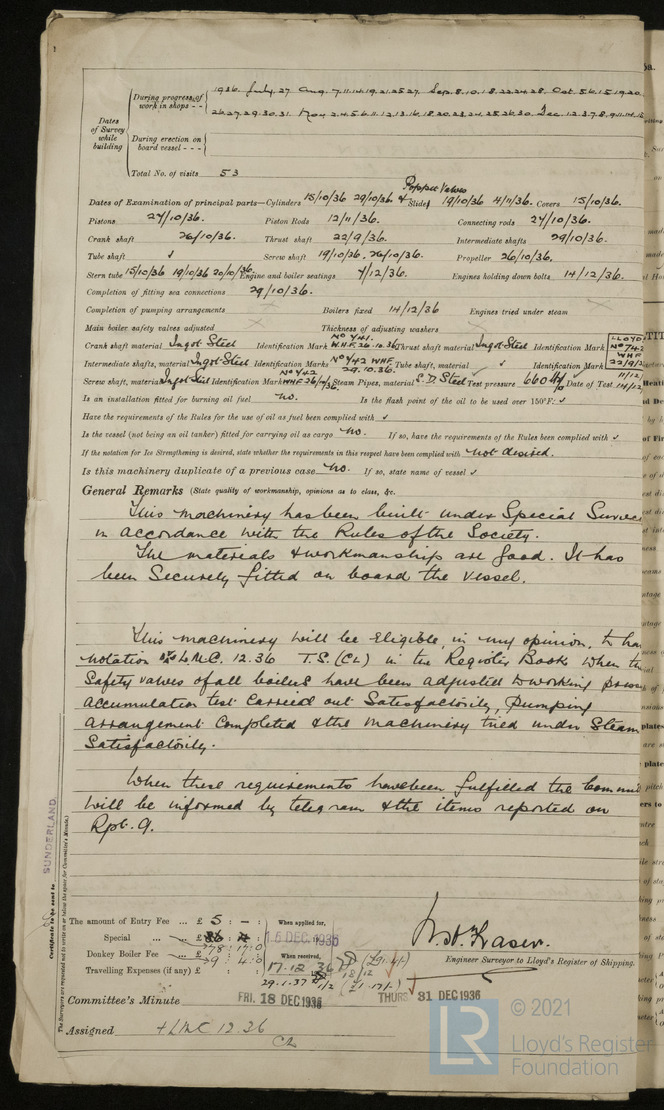 Dates of Survey while building
During progress of work in shops - -
1936. July, 27 Aug. 7. 11. 14. 19. 21. 25. 27. Sep. 8. 10. 18. 22. 24. 28. Oct. 5. 6. 15. 19. 20.
26. 27. 29. 30. 31. Nov. 2. 4. 5. 6. 11. 12. 13. 16. 18. 20. 23. 24. 25. 26. 30. Dec. 1. 2. 3. 7. 8. 9. 11. 14.
During erection on board vessel - - -
Total No. of visits 53
Poppet Valves
Dates of Examination of principal parts—Cylinders 15/10/36 29/10/36 & Slides 19/10/36 4/11/36. Covers 15/10/36.
Pistons 27/10/36. Piston Rods 12/11/36. Connecting rods 27/10/36.
Crank shaft 26/10/36. Thrust shaft 22/9/36. Intermediate shafts 29/10/36.
Tube shaft ✓ Screw shaft 19/10/36, 26/10/36. Propeller 26/10/36.
Stern tube 15/10/36 19/10/36 20/10/36. Engine and boiler seatings 7/12/36. Engines holding down bolts 14/12/36.
Completion of fitting sea connections 29/10/36.
Completion of pumping arrangements Boilers fixed 14/12/36 Engines tried under steam
Main boiler safety valves adjusted Thickness of adjusting washers
Crank shaft material Ingot Steel Identification Mark No 741. W.H.F. 26.10.36 Thrust shaft material Ingot Steel Identification Mark LLOYD'S No 742 WHF 22/9/36
Intermediate shafts, material Ingot Steel Identification Marks No 742 WHF 29.10.36. Tube shaft, material ✓ Identification Mark
Screw shaft, material Ingot Steel Identification Mark No 742 WHF 26/10/36. Steam Pipes, material S.D. Steel Test pressure 660 Date of Test
Is an installation fitted for burning oil fuel no. Is the flash point of the oil to be used over 150°F. ✓
Have the requirements of the Rules for the use of oil as fuel been complied with ✓
Is the vessel (not being an oil tanker) fitted for carrying oil as cargo no. If so, have the requirements of the Rules been complied with ✓
If the notation for Ice Strengthening is desired, state whether the requirements in this respect have been complied with not desired.
Is this machinery duplicate of a previous case no. If so, state name of vessel ✓
General Remarks (State quality of workmanship, opinions as to class, &c.
This machinery has been built under Special Survey
in accordance with the Rules of the Society.
The materials & workmanship are good. It has
been securely fitted on board the vessel.
This machinery will be eligible, in my opinion, to have
notation L.M.C. 12.36 T.S. (CL) in the Register Book when the
safety valves of all boilers have been adjusted to working pressure
accumulation test carried out satisfactorily, pumping
arrangement completed & the machinery tried under steam
satisfactorily.
When these requirements have been fulfilled the Committee
will be informed by telegram & the items reported on
Rpt. 9.
SUNDERLAND.
Certificate to be sent to
(The Surveyors are requested not to write on or below the space for Committee's Minute.)
The amount of Entry Fee ... £ 5 : - : When applied for,
Special ... £ 78 : 17 : 0 16 DEC 1936
Donkey Boiler Fee ... £ 9 : 4 : 0 When received,
Travelling Expenses (if any) £ 17.12 36
29.1.37
W.H. Fraser.
Engineer Surveyor to Lloyd's Register of Shipping.
Committee's Minute FRI. 18 DEC 1936 THURS 31 DEC 1936
Assigned + LMC 12.36
CL
© 2021
LR
Lloyd's Register
Foundation